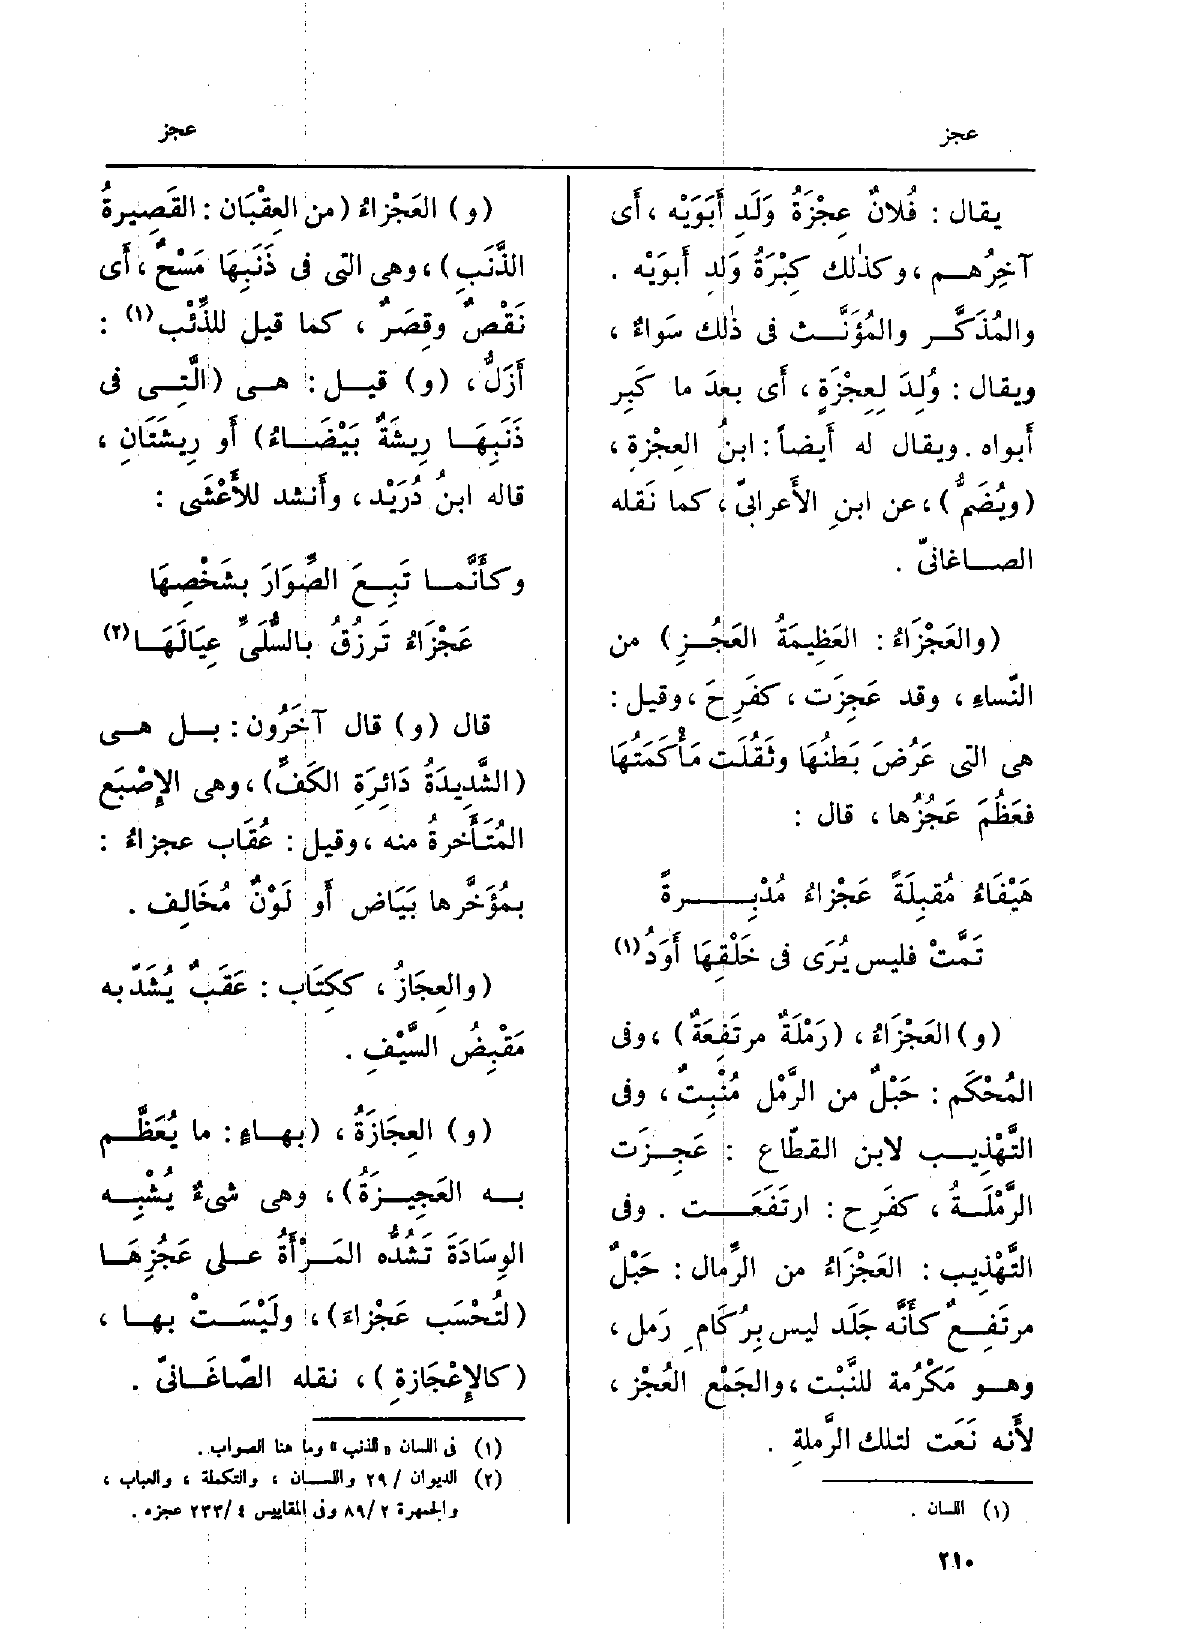 عجز
عجز
يقال : فُلانٌ عِجْزَةُ وَلَدِ أَبَوَيْه ، أَى
آخِرُهــم ، وكذٰلك كِبْرَةُ وَلَدِ أَبويْه .
والمُذَكَّــر والمُؤَنَّــث فى ذٰلك سَواءٌ ،
ويقال : وُلِدَ لِعِجْزَةٍ ، أَى بعدَ ما كَبِر
أَبواه . ويقال له أَيضاً : ابنُ العِجْزةِ ،
(ويُضَمُّ) ، عن ابنِ الأَعرابىّ ، كما نَقَله
الصــاغانىّ .
(والعَجْزَاءُ : العَظِيمَةُ العَجُــزِ) من
النِّساءِ ، وقد عَجِزَت ، كفَرِحَ ، وقيل :
هى التى عَرُضَ بَطنُهَا وثَقُلَت مَأْكَمَتُهَا
فعَظُمَ عَجُزُها ، قال :
هَيْفَاءُ مُقبِلَةً عَجْزاءُ مُدْبِــرةً
تَمَّتْ فليس يُرَى فى خَلْقِهَا أَوَدُ (١)
(و) العَجْزَاءُ ، (رَمْلَةٌ مرتَفِعَةٌ) ، وفى
المُحْكَم : حَبْلٌ من الرَّمْل مُنْبِتٌ ، وفى
التَّهْذِيــب لابن القطَّاع : عَجِــزَت
الرَّمْلَــةُ ، كفَرِح : ارتَفَعَــت . وفى
التَّهْذِيب : العَجْزَاءُ من الرِّمال : حَبْلٌ
مرتَفِــعٌ كأَنَّه جَلَد ليس بِرُكَامِ رَمل ،
وهــو مَكْرُمة للنَّبْت ، والجَمْع العُجْز ،
لأَنه نَعَت لتلك الرَّملةِ .
(١) اللسان .
(و) العَجْزاءُ (من العِقْبَان : القَصِيرةُ
الذَّنَبِ) ، وهى التى فى ذَنَبِهَا مَسْحٌ ، أَى
نَقْصٌ وقِصَرٌ ، كما قيل للذِّئْب (١) :
أَزَلُّ ، (و) قيــل : هــى (الَّتِــى فى
ذَنَبِهَــا رِيشةٌ بَيْضَــاءُ) أَو رِيشَتَانِ ،
قاله ابنُ دُرَيْد ، وأَنشد للأَعْشَى :
وكأَنَّمــا تَبِــعَ الصُّوَارَ بشَخْصِهَا
عَجْزَاءُ تَرزُقُ بالسُّلَىِّ عِيَالَهَــا (٢)
قال (و) قال آخَرُون : بــل هــى
(الشَّدِيدَةُ دَائِرَةِ الكَفِّ) ، وهى الإِصْبَع
المُتَأَخرةُ منه ، وقيل : عُقَاب عجزاءُ :
بمُؤَخَّرها بَيَاض أَو لَوْنٌ مُخَالِف .
(والعِجَازُ ، ككِتَاب : عَقَبٌ يُشَدّ به
مَقْبِضُ السَّيْفِ .
(و) العِجَازَةُ ، (بهــاءٍ : ما يُعَظَّــم
بــه العَجِيــزَةُ) ، وهى شىءٌ يُشْبِــه
الوِسَادَةَ تَشُدُّه المَــرْأَةُ علــى عَجُزِهَــا
(لتُحْسَب عَجْزاءَ) ، ولَيْسَــتْ بهــا ،
(كالإِعْجَازةِ) ، نقله الصّاغَــانىّ .
(١) فى اللسان «الذنب» وما هنا الصواب .
(٢) الديوان / ٢٩ واللــان ، والتكملة ، والعباب ،
والجمهرة ٢ /٨٩ وفى المقاييس ٤ /٢٣٣ عجزه .
٢١٠